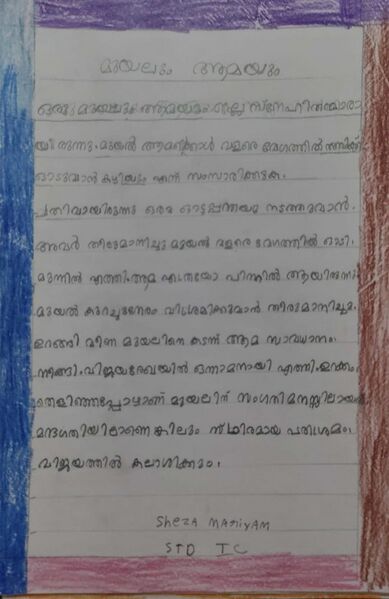 മുയലും ആമയും
ഒരു മുയലും ആമയും നല്ല സ്നേഹിതന്മാരാ
യിരുന്നു. മുയൽ ആമയെക്കാൾ വളരെ വേഗത്തിൽ
ഓടുവാൻ കഴിയും എന്ന് സംസാരിക്കുക.
പതിവായിരുന്നു ഒരു ഓട്ടപ്പന്തയം നടത്തുവാൻ.
അവർ തീരുമാനിച്ചു മുയൽ വളരെ വേഗത്തിൽ ഓടി.
മുന്നിൽ എത്തി. ആമ ഏറെയോ പിന്നിൽ ആയിരുന്നു
മുയൽ കുറച്ചുനേരം വിശ്രമിക്കുവാൻ തീരുമാനിച്ചു.
ഉറങ്ങി വീണ മുയലിനെ കടന്ന് ആമ സാവധാനം.
നീങ്ങി. വിജയരേഖയിൽ ഒന്നാമനായി എത്തി. ഉറക്കം
തെളിഞ്ഞപ്പോഴാണ് മുയലിന് സംഗതി മനസ്സിലായത്
മന്ദഗതിയിലാണെങ്കിലും സ്ഥിരമായ പരിശ്രമം.
വിജയത്തിൽ കലാശിക്കും.
Sheza Mariyam
STD I C